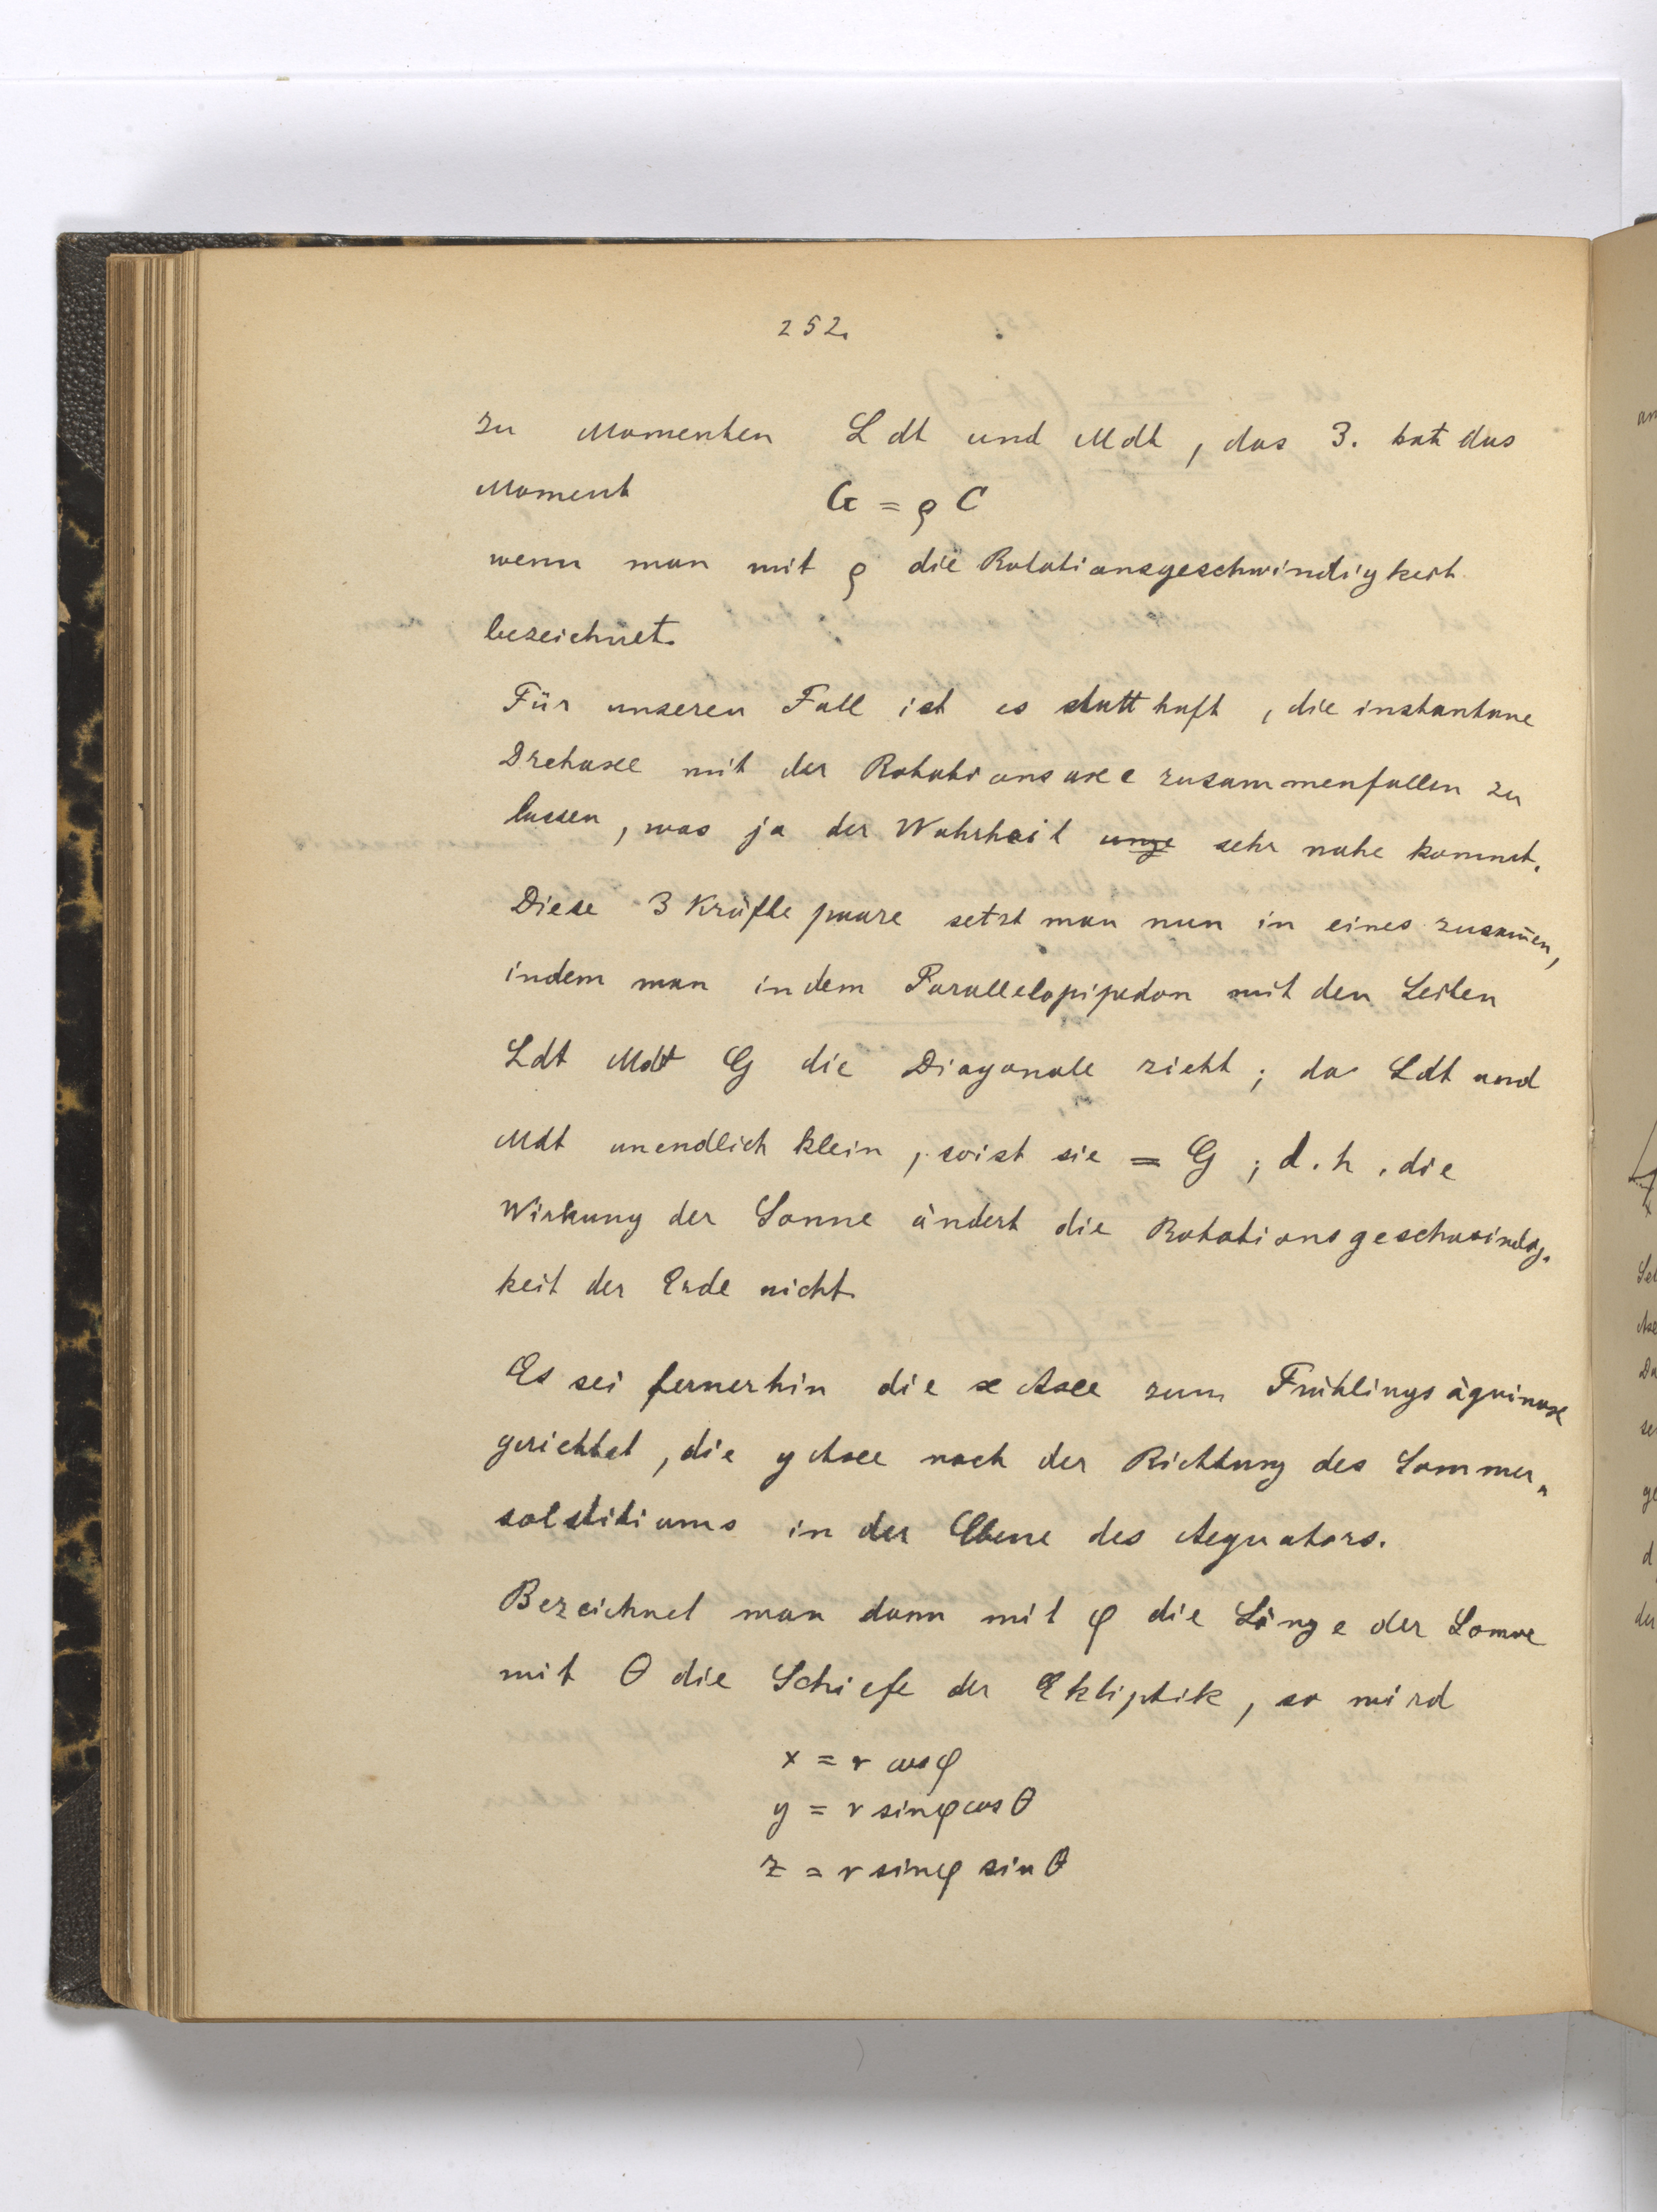 252.
zu Momenten L dt und M dt, das 3. hat das
Moment G = ϱ C
wenn man mit ϱ die Rotationsgeschwindigkeit
bezeichnet.
Für unseren Fall ist es statthaft, die instantane
Drehaxe mit der Rotationsaxe zusammenfallen zu
lassen, was ja der Wahrheit unge sehr nahe kommt.
Diese 3 Kräftepaare setzt man nun in eines zusam̄en,
indem man in dem Parallelopipedon mit den Seiten
Ldt Mdt G die Diagonale zieht; da Ldt und
Mdt unendlich klein, so ist sie = G; d.h. die
Wirkung der Sonne ändert die Rotationsgeschwindig-
keit der Erde nicht.
Es sei fernerhin die x Axe zum Frühlingsäquinox
gerichtet, die y Axe nach der Richtung des Sommer-
solstitiums in der Ebene des Aequators.
Bezeichnet man dann mit φ die Länge der Sonne
mit θ die Schiefe der Ekliptik, so wird
x = r cos φ
y = r sin φ cos θ
z = r sin φ sin θ